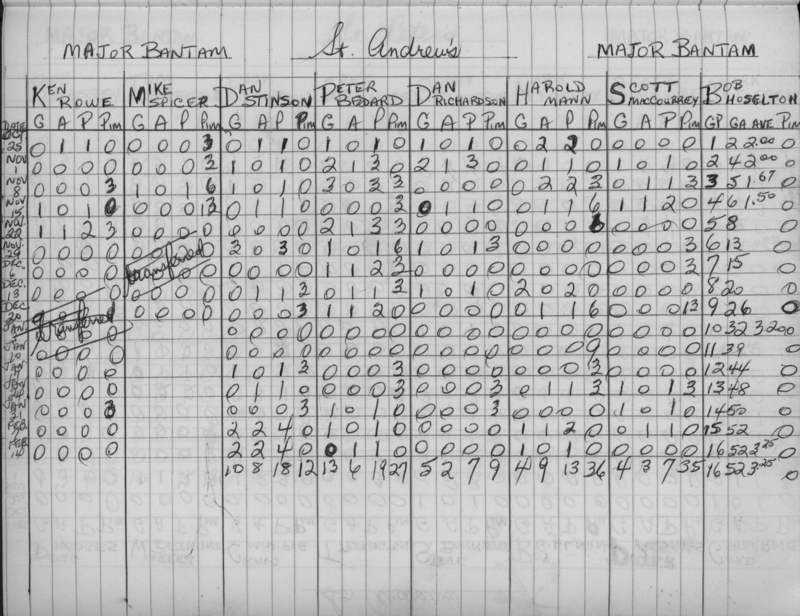 MAJOR BANTAM St. Andrew's MAJOR BANTAM
KEN ROWE MIKE SPICER DAN STINSON PETER BEDARD DAN RICHARDSON HAROLD MANN SCOTT MACCOURREY BOB HOSELTON
DATE G A P Pim G A P Pim G A P Pim G A P Pim G A P Pim G A P Pim G A P Pim GP GA AVE Pim
OCT 25 0 1 1 0 0 0 0 3 0 1 1 0 1 0 1 0 0 1 1 0 0 2 2 0 0 0 0 0 1 2 2.00 0
NOV 1 0 0 0 0 0 0 0 3 1 0 1 0 2 1 3 0 2 1 3 0 0 1 1 0 1 0 1 0 2 4 2.00 0
NOV 8 0 0 0 3 1 0 1 6 1 0 1 0 3 0 3 3 0 0 0 0 0 2 2 3 0 1 1 3 3 5 1.67 0
NOV 15 1 0 1 0 0 0 0 13 0 1 1 0 0 0 0 3 0 1 1 0 0 1 1 6 1 1 2 0 4 6 1.50 0
NOV 22 1 1 2 3 0 0 0 0 0 0 0 0 2 1 3 3 0 0 0 0 0 0 0 0 0 0 0 5 8 0
NOV 29 0 0 0 0 transferred 3 0 3 0 1 0 1 6 1 0 1 3 0 0 0 0 0 0 0 3 6 13 0
DEC. 6 0 0 0 0 0 0 0 0 1 1 2 3 0 0 0 0 0 0 0 0 0 0 0 3 7 15 0
DEC. 13 0 0 0 0 0 0 0 0 0 1 1 3 0 1 1 3 1 0 1 0 2 0 2 0 0 0 0 0 8 20 0
DEC. 20 transferred 0 0 0 0 0 0 0 3 1 1 2 0 0 0 0 0 0 1 1 6 0 0 0 13 9 26 0
JAN 0 0 0 0 0 0 0 0 0 0 0 0 0 0 0 0 0 0 0 0 10 32 3.20 0
JAN 10 0 0 0 0 0 0 0 0 0 0 0 0 0 0 0 0 0 0 0 0 0 0 0 11 39 0
JAN 0 0 0 0 1 0 1 3 0 0 0 3 0 0 0 0 0 0 0 3 0 0 0 0 12 44 0
JAN 24 0 0 0 0 0 1 1 0 0 0 0 3 0 0 0 3 0 1 1 3 1 0 1 3 13 48 0
JAN 31 0 0 0 3 0 0 0 3 1 0 1 0 0 0 0 3 0 0 0 0 1 0 1 0 14 50 0
FEB 7 0 0 0 0 2 2 4 0 1 0 1 0 0 0 0 0 1 1 2 0 0 1 1 0 15 52 0
FEB 14 0 0 0 0 2 2 4 0 0 1 1 0 0 0 0 0 1 0 1 0 0 0 0 0 16 52 3.25 0
10 8 18 12 13 6 19 27 5 2 7 9 4 9 13 36 4 3 7 35 16 52 3.25 0